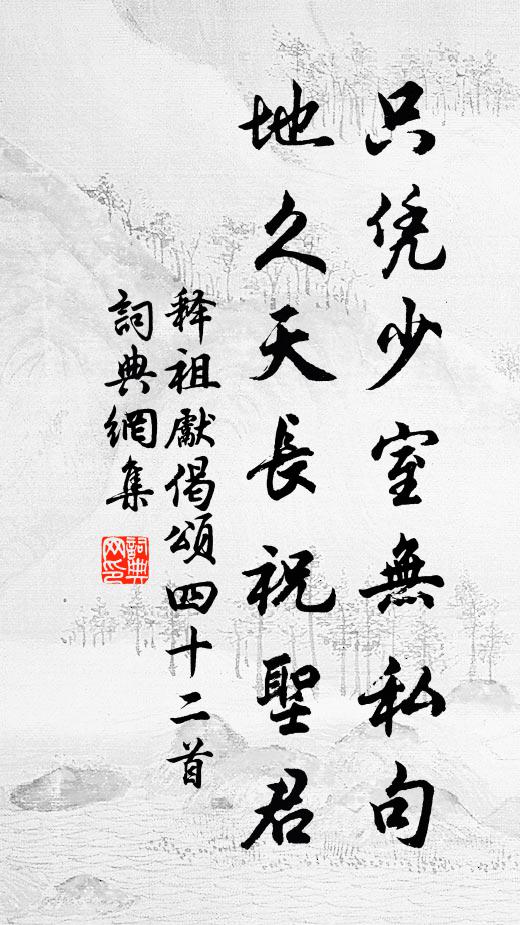 只凭少室無私句
地久天長祝聖君
释祖獻偈頌四十二首
詞典網集
詞典網印